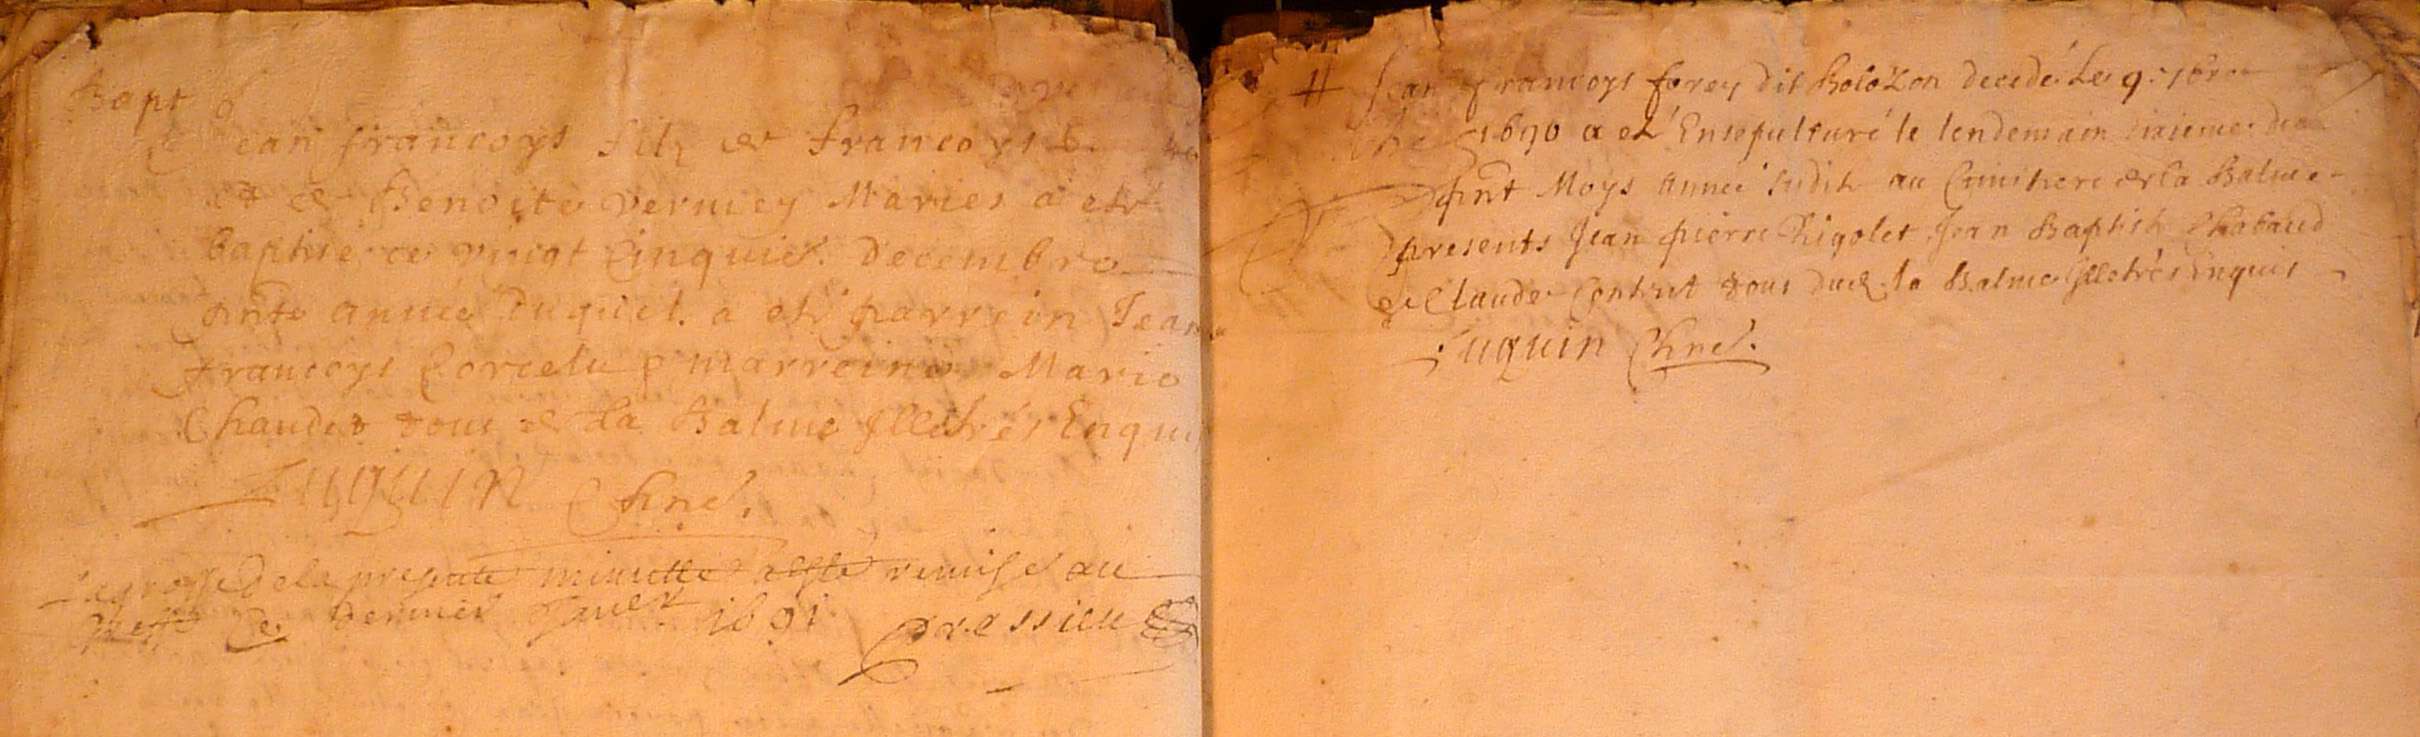 Bapt 6
Jean francoys filz de francoys
et de Benoite verniey Maries a este
baptise ce vingt cinquie. decembre
pnte année susdit. a este parrein Jean
francoys Porcelu & marreine Marie
Chaudet tous de la Balme illetrés Enquis
Cure.
La grosse de la presente minutte a esté remise au
greffe ce dernier Janer 1691 Pressieu
Jean francoys forey dit Bolozon decedé Le 9. xbre
1690 a eté Ensepulturé le lendemain dixieme du
pnt Moys année susdite au Cimitiere de la Balme
presents Jean pierre Rigolet Jean Baptiste Chabaud
et Claude tous de la Balme illetrés enquis
Cure.